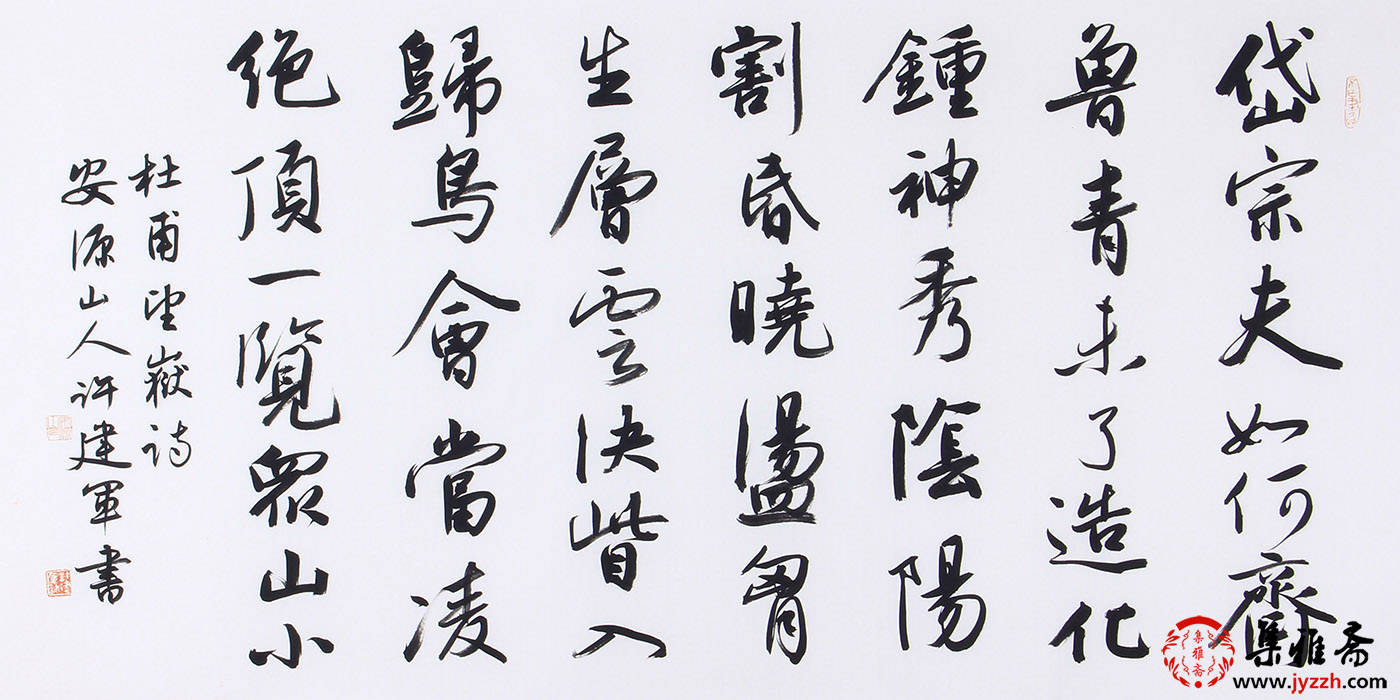 岱宗夫如何齊
魯青未了造化
鍾神秀陰陽
割昏曉盪胷
生層雲決眥入
歸鳥會當凌
絶頂一覽眾山小
杜甫望嶽詩
安源山人許建軍書
集雅斋
集雅斋
www.jyzzh.com